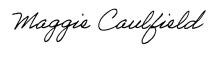 Maggie Caulfield